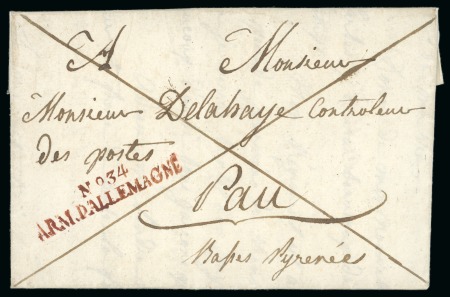 A Monsieur
Monsieur Delahaye Controleur
des postes
No 34
ARM. D'ALLEMAGNE
Pau
Basses Pyrenées